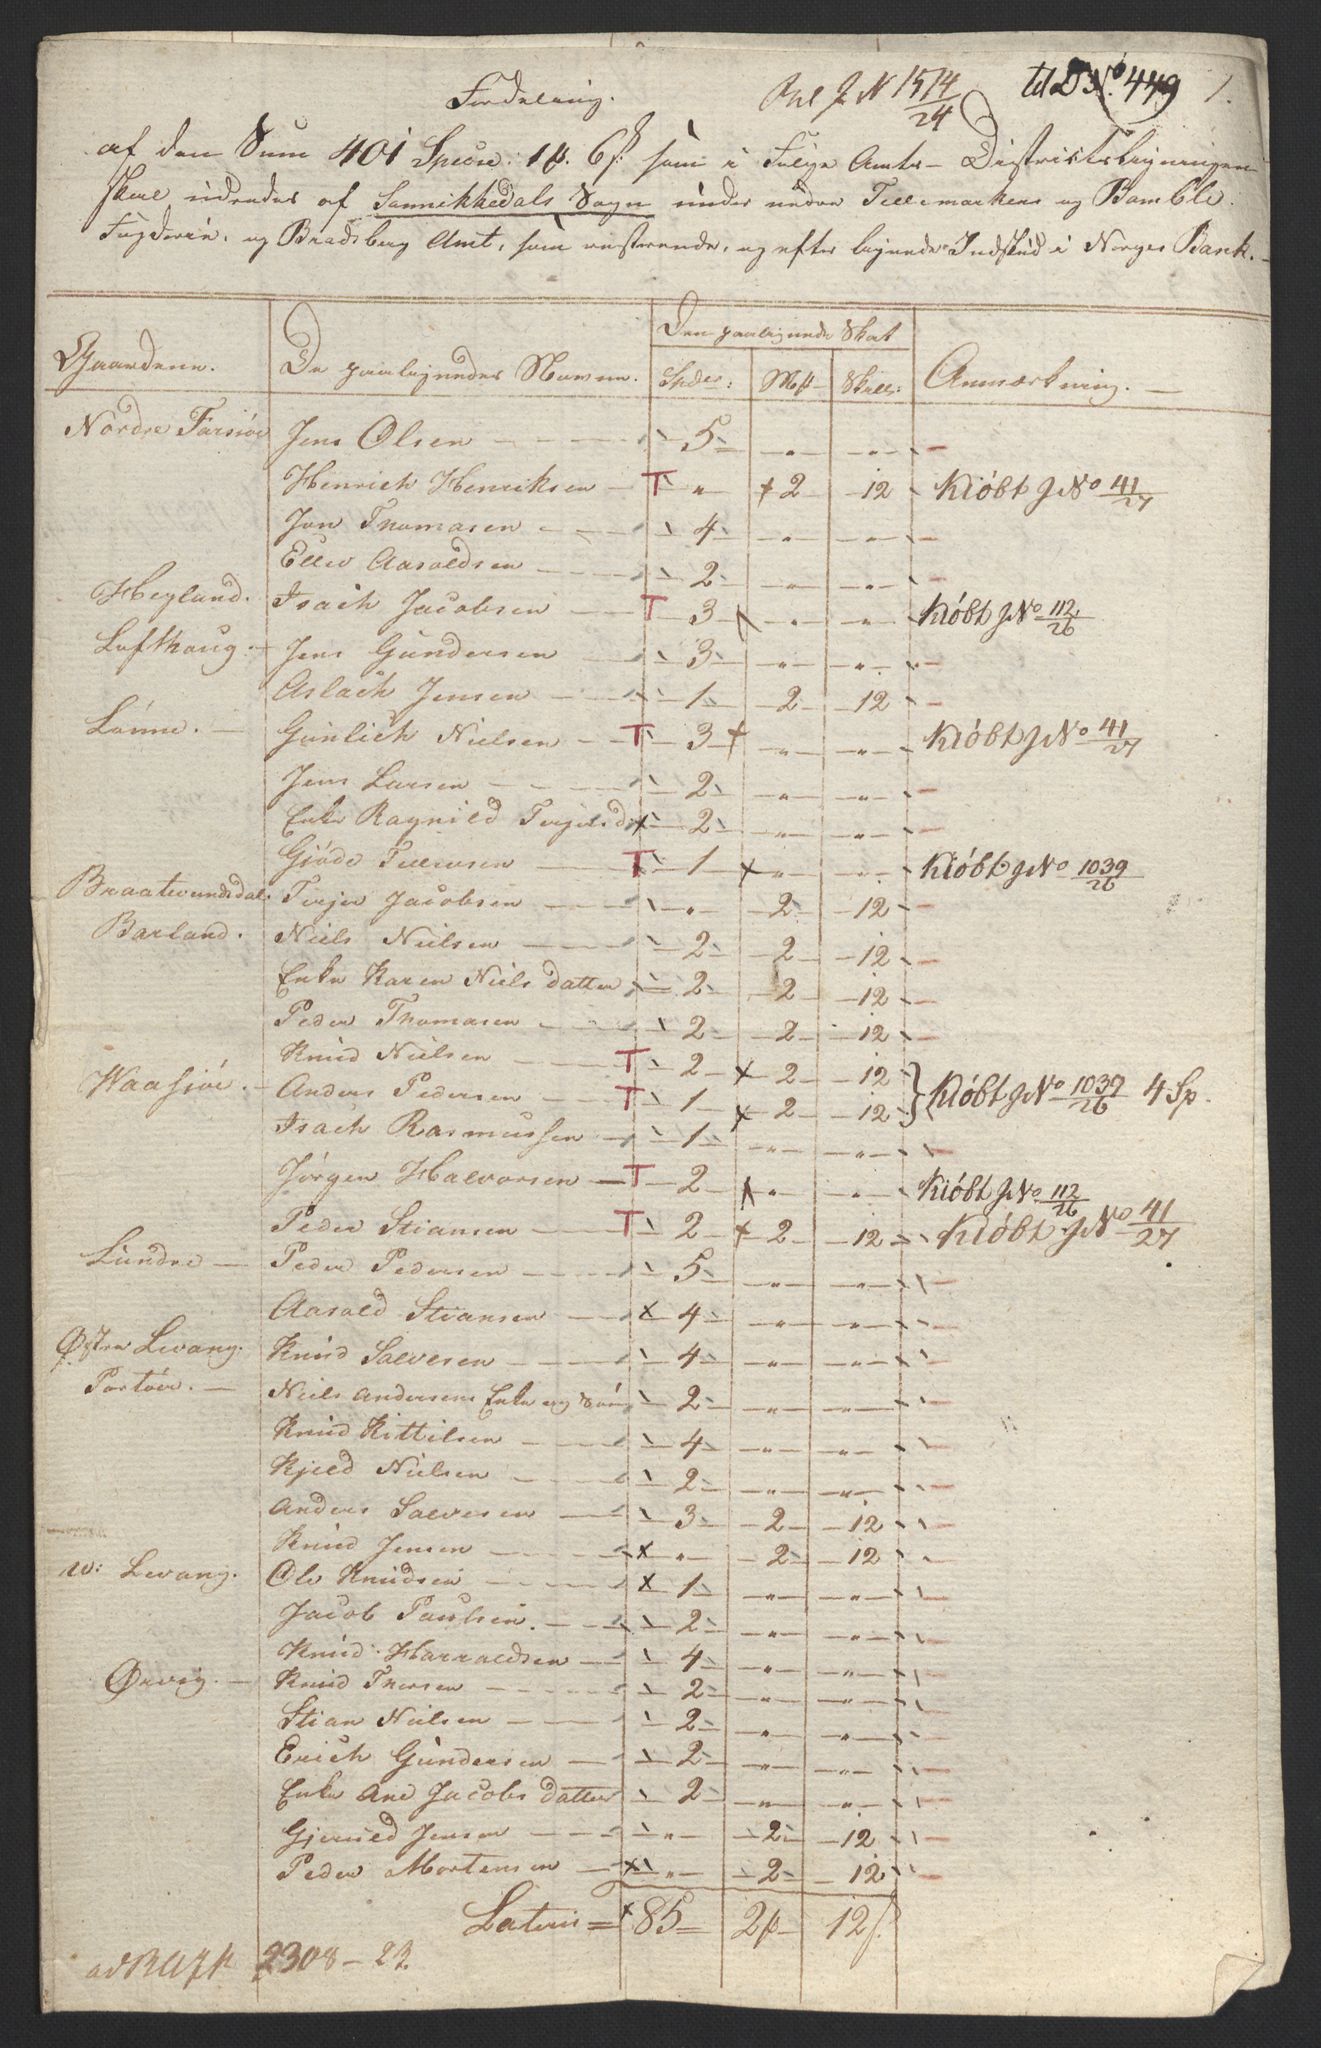 Fordeling.
til D No 449 1.
J N 1514/24
af den Sum 401 Specie: 1 . 6 s: som i Følge Amts- Districtsligningen
skal udredes af Sannikkedals Sogn under nedre Tellemarkens og Bamble
Fogderie, og Bradsberg Amt, som resterende, og efter lignede Indskud i Norges Bank.
Den paalignede Skat
Gaardene. De paalignedes Navne. Spdlr: Mk Skill: Anmærkning.
Nordre Farsiøe Jens Olsen 5 " "
Henrich Henriksen T " 2 12 Kiøbt JNo 41/27
Jon Thomasen 4 " "
Ellev Aasoldsen 2 " "
Heyland. Isach Jacobsen T 3 " " Kiøbt JNo 112/26
Lofthaug. Jens Gundersen 3 " "
Aslach Jensen 1 2 12
Lønne. Gunlich Nielsen T 3 " " Kiøbt JNo 41/27
Jens Larsen 2 " "
Enke Ragnild Tergesd 2 " "
Gjøde Tellevsen T 1 " " Kiøbt JNo 1039/26
Braatevundsdal Terjer Jacobsen " 2 12
Barland. Niels Nielsen 2 2 12
Enke Karen Niels datter 2 2 12
Peder Thomasen 2 2 12
Knud Nielsen T 2 2 12
Waasjøe. Anders Pedersen T 1 2 12 } Kiøbt JNo 1037/26 4 Sp.
Isach Rasmussen 1 " "
Jørgen Halvorsen T 2 " " Kiøbt JNo 112/26
Peder Stiansen T 2 2 12 Kiøbt JNo 41/27
Lundre Peder Pedersen 5 " "
Aasold Stiansen x 4 " "
Østre Levang. Knud Salvesen 4 " "
Portøer. Niels Andersens Enke og Søn 2 " "
Knud Kittilsen 4 " "
Kjeld Nielsen 2 " "
Anders Salvesen 3 2 12
Knud Jensen x " 2 12
w: Levang. Ole Knudsen x 1 " "
Jacob Paulsen. 2 " "
Knud Harraldsen 4 " "
Ørvig. Knud Thorsen 2 " "
Stian Nielsen 2 " "
Erich Gundersen 2 " "
Enke Ane Jacobs datter 2 " "
Gjeruld Jensen " 2 12
Peder Mortensen x " 2 12
Lateris = x 85 2 12 s.
2308 - 23.